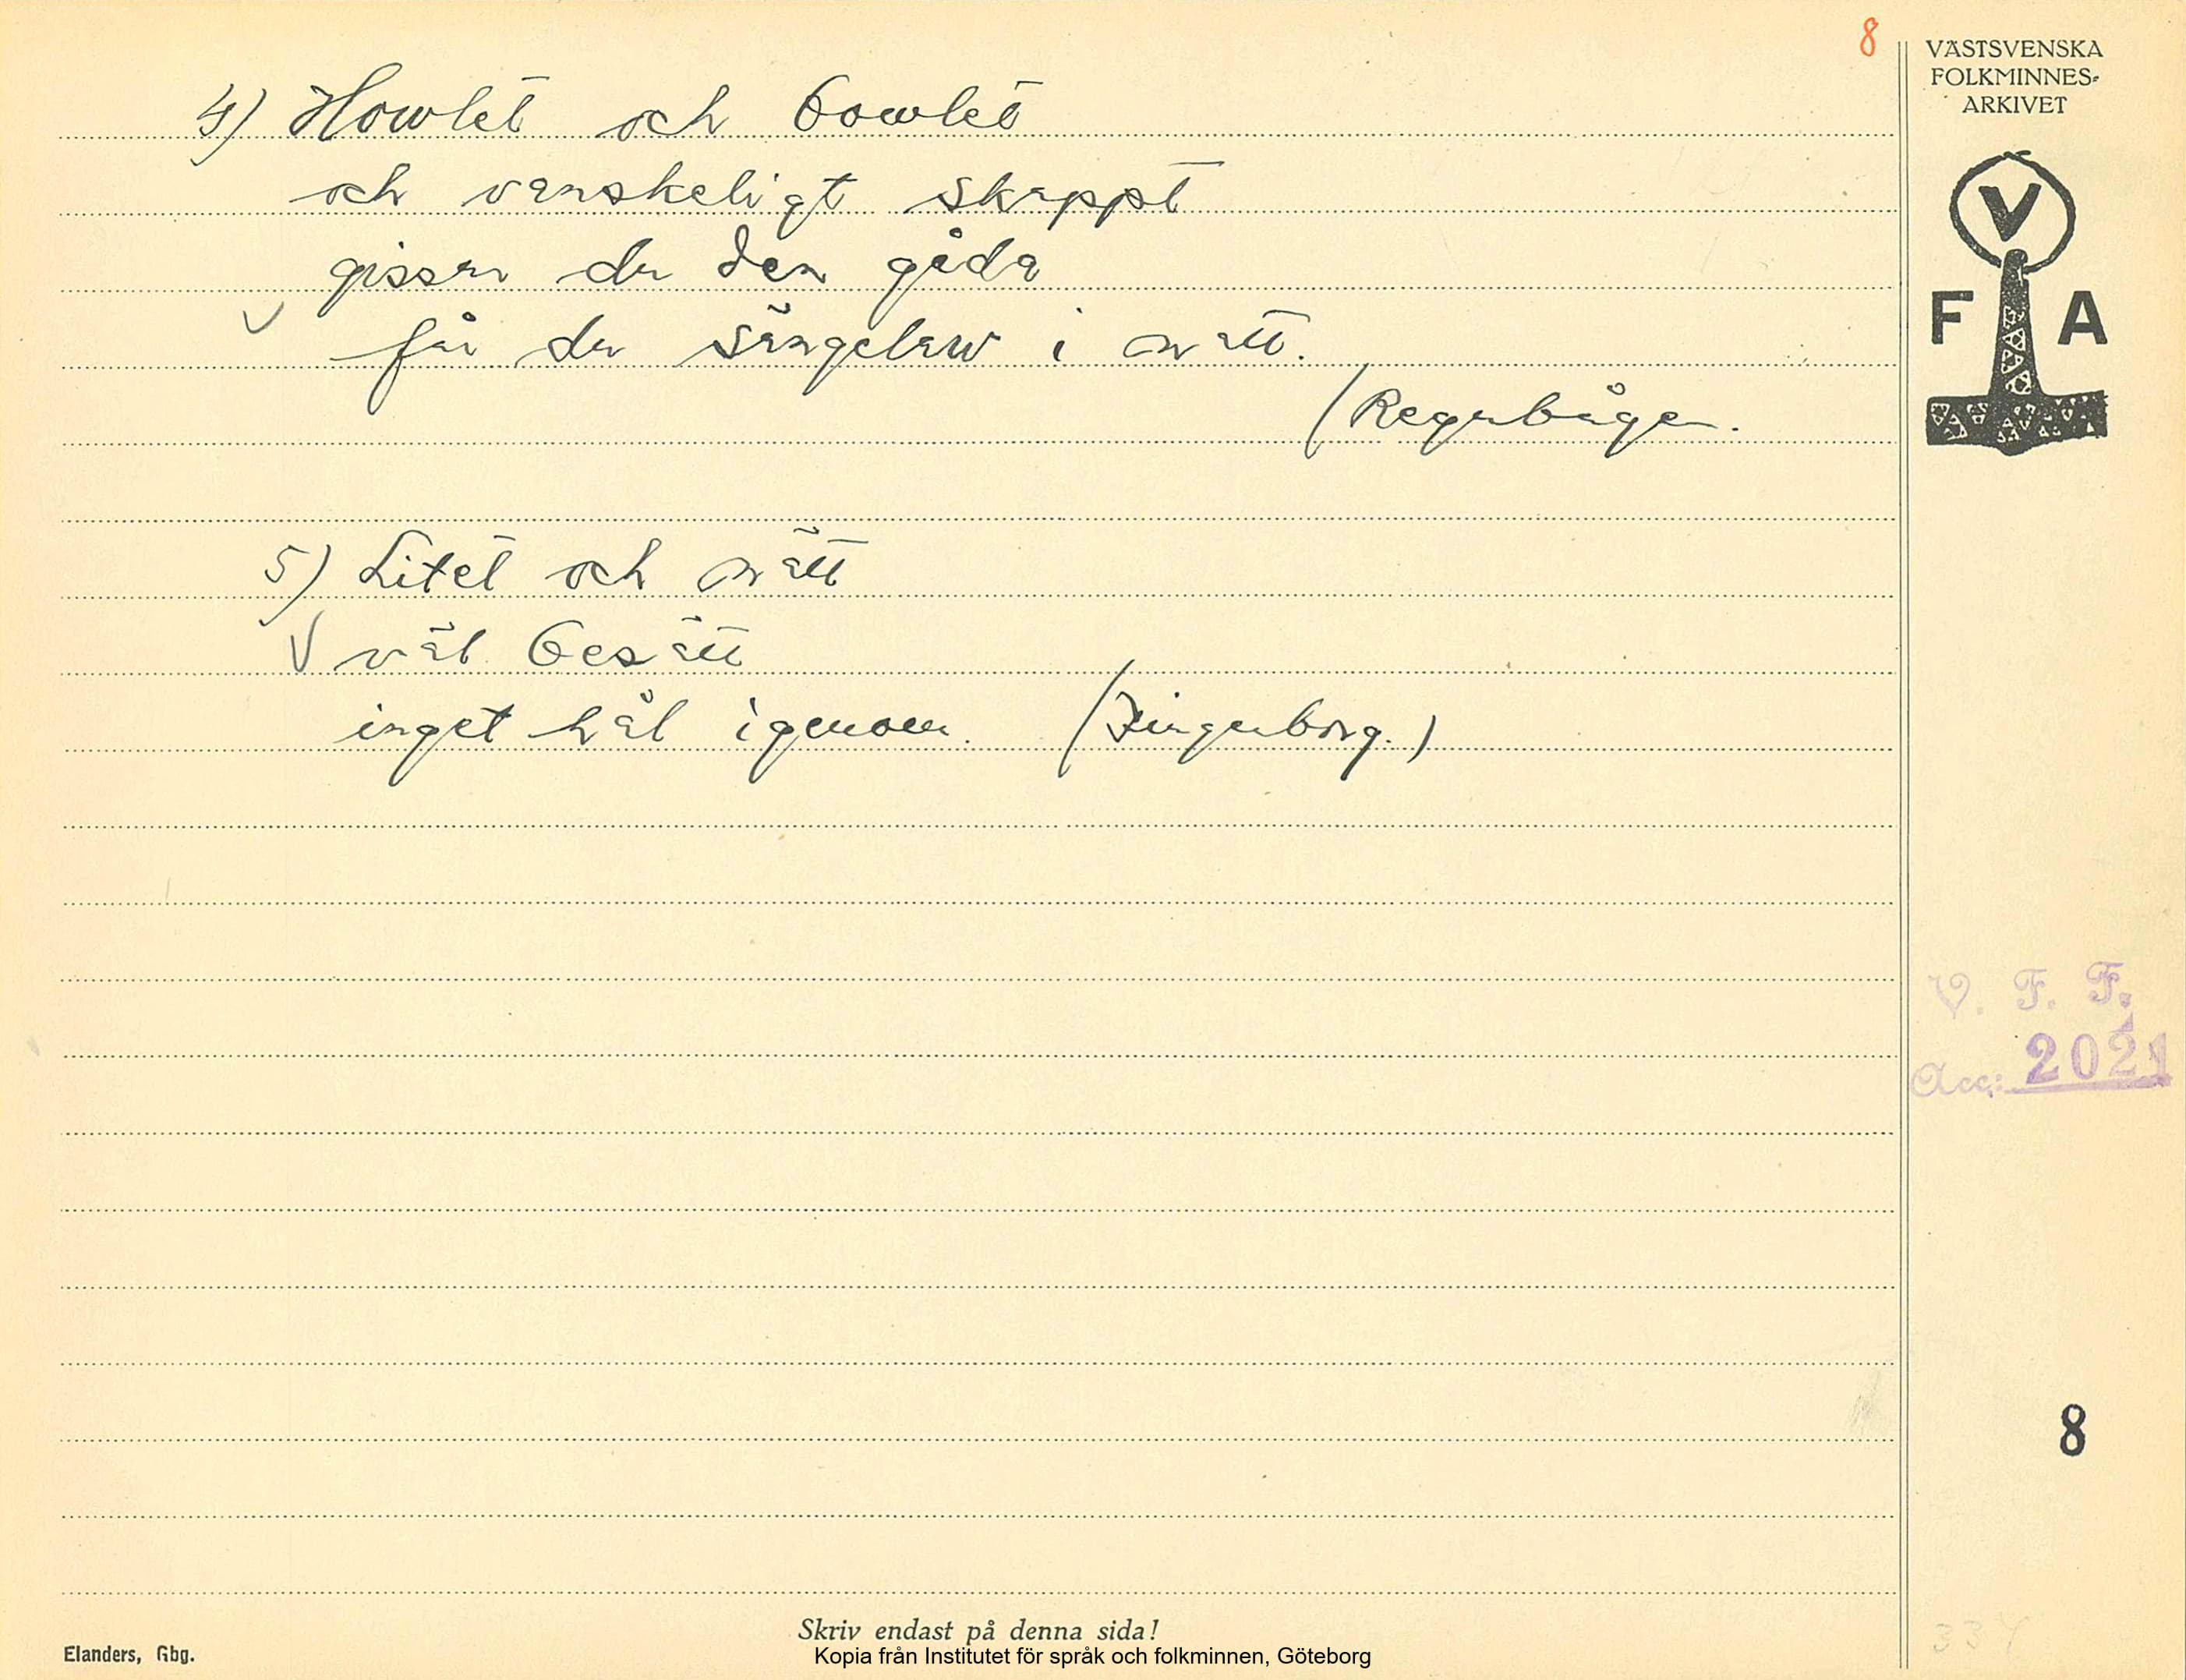 8
VÄSTSVENSKA
FOLKMINNES-
ARKIVET
V
F A
4) Howlet och bowlet
och vanskeligt skappt
gissar du den gåda
får du sängelaw i natt.
(Regnbågen.
5) Litet och nätt
väl besatt
inget hål igenom. (Fingerborg.)
V. F. F.
Acc: 2021
8
334
Skriv endast på denna sida!
Elanders, Gbg.
Kopia från Institutet för språk och folkminnen, Göteborg